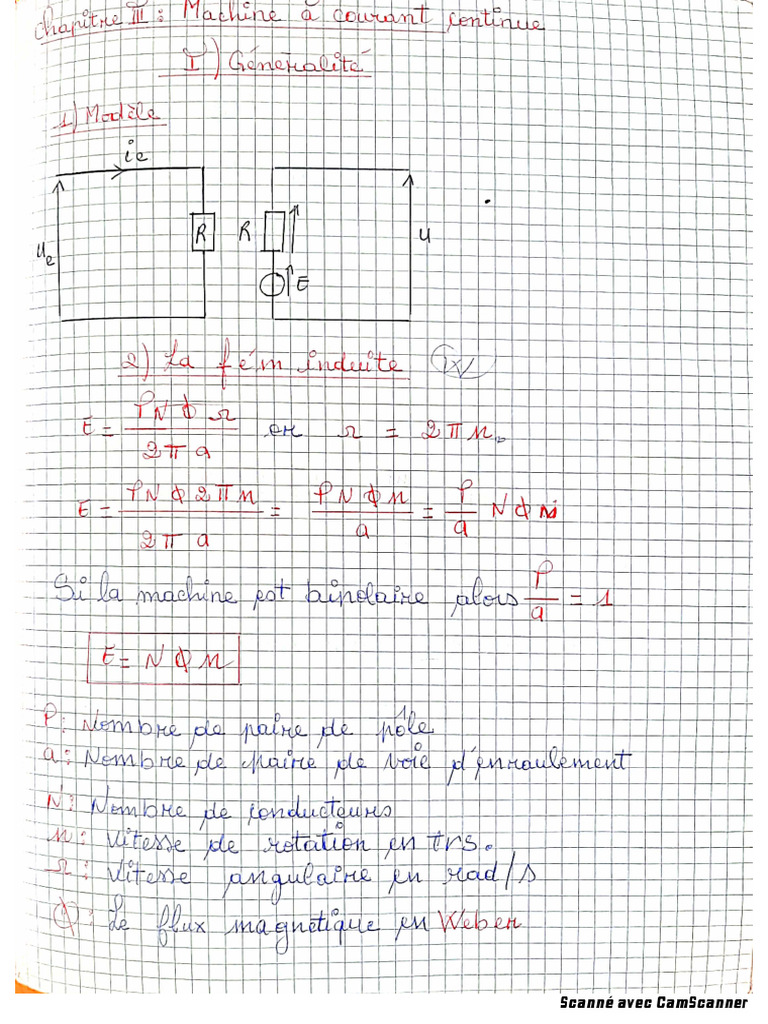 Chapitre III : Machine à courant continue
I) Généralité
1) Modèle
ie
ue
R
R
E
u
2) La fém induite
E = PNΦΩ / 2πa or Ω = 2πn
E = PNΦ2πn / 2πa = PNΦn / a = P/a NΦn
Si la machine est bipolaire alors P/a = 1
E = NΦn
P : Nombre de paire de pôle
a : Nombre de paire de voie d'enroulement
N : Nombre de conducteurs
n : vitesse de rotation en trs.
Ω : vitesse angulaire en rad/s
Φ : Le flux magnétique en Weber
Scanné avec CamScanner